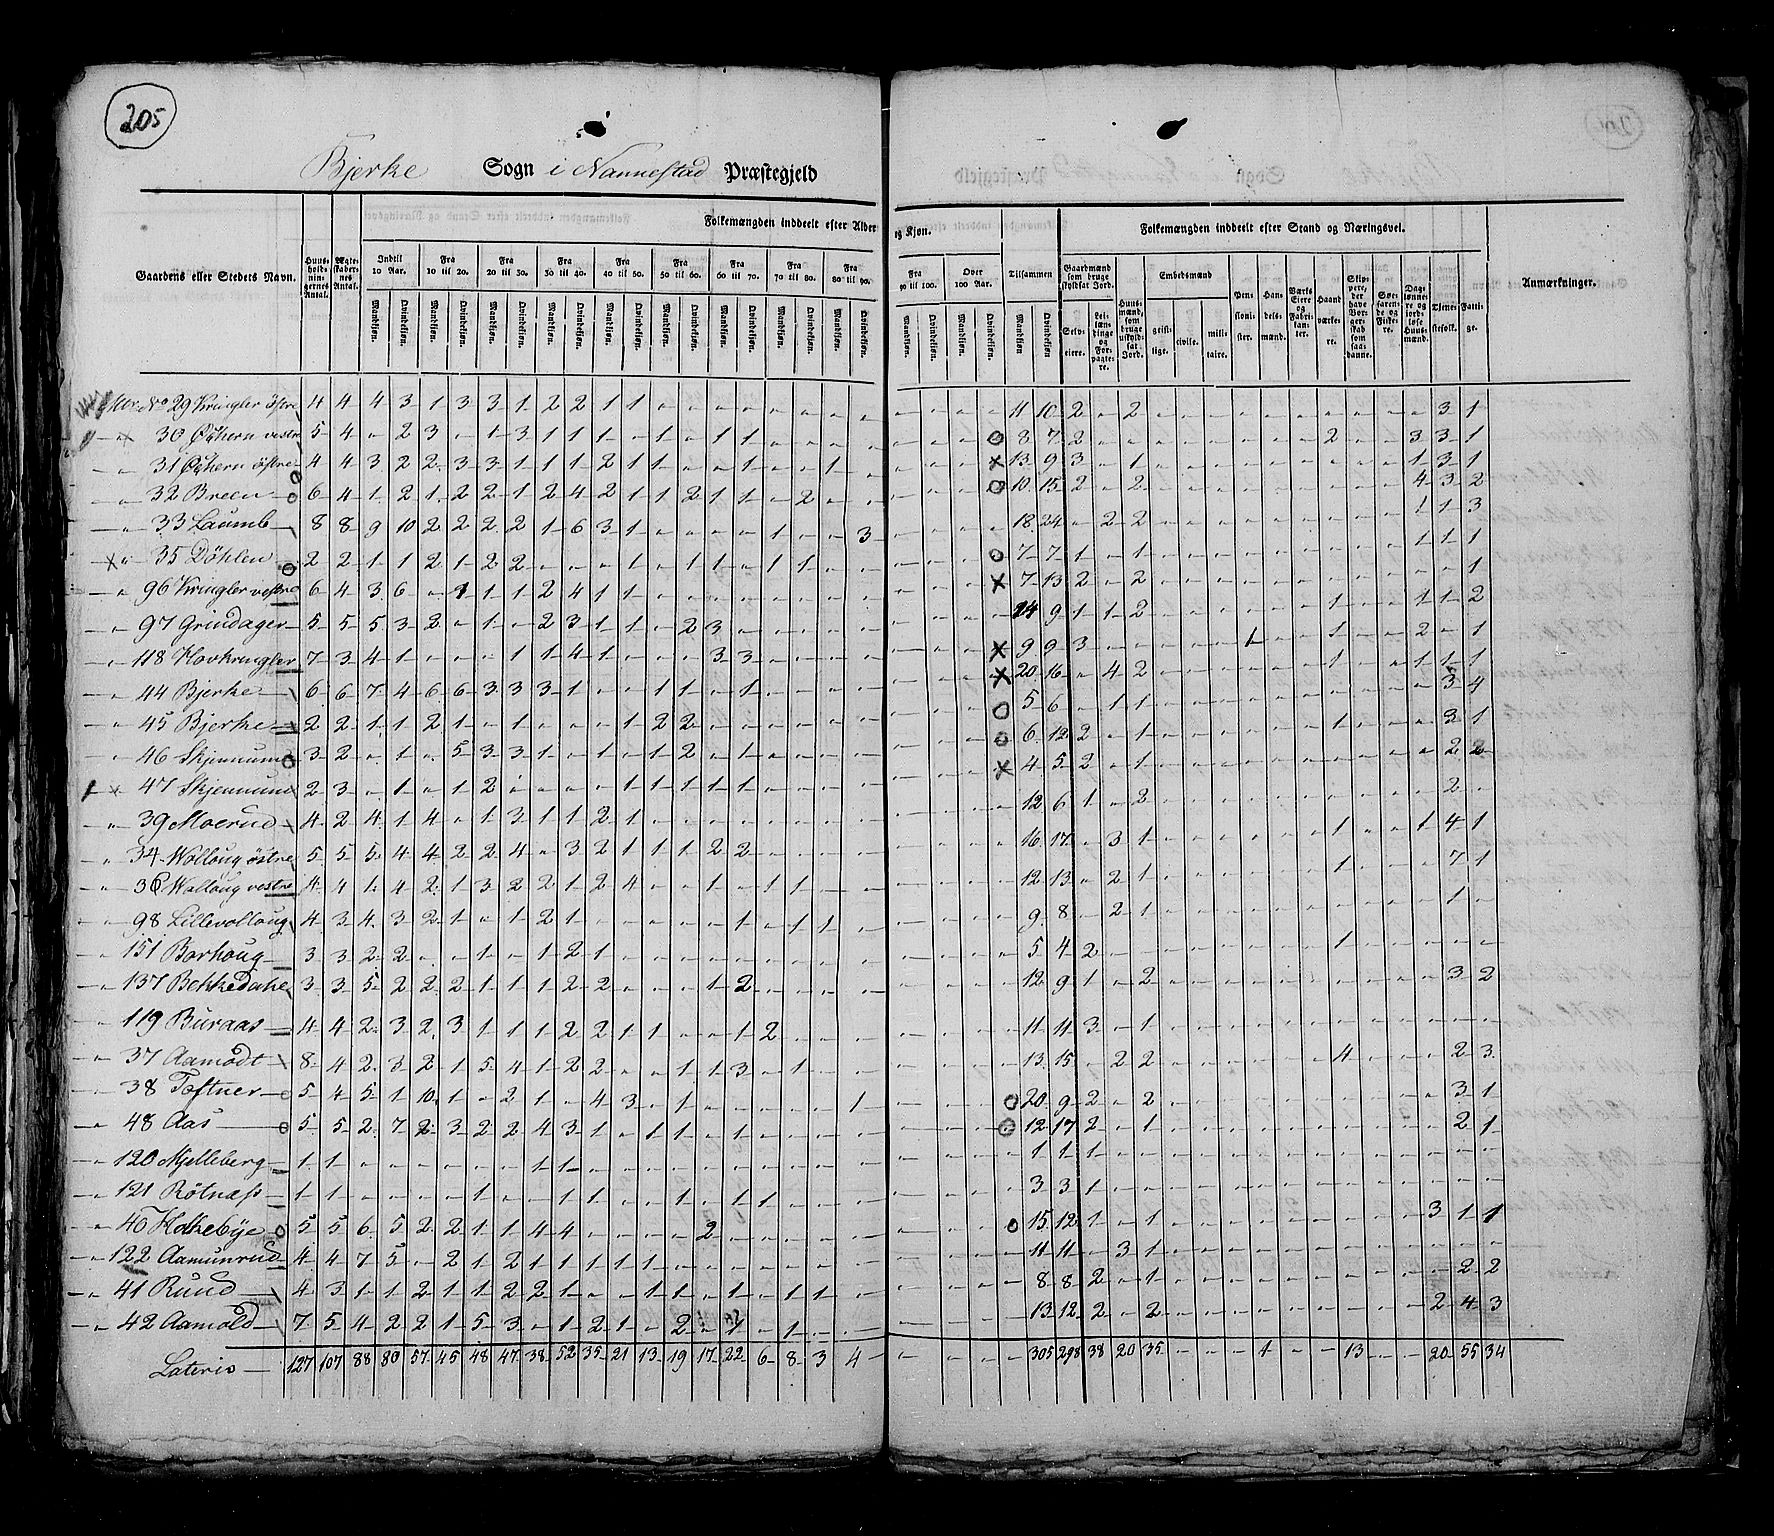 205
Bjerke Sogn i Nannestad Præstegjeld
Gaardens eller Stedets Navn.
Huusholdningernes Antal.
Ægteskabernes Antal.
Folkemængden inddeelt efter Alder og Kjøn.
Indtil 10 Aar.
Fra 10 til 20.
Fra 20 til 30.
Fra 30 til 40.
Fra 40 til 50.
Fra 50 til 60.
Fra 60 til 70.
Fra 70 til 80.
Fra 80 til 90.
Fra 90 til 100.
Over 100 Aar.
Tilsammen
Mandkjøn. Qvindekjøn.
Folkemængden inddeelt efter Stand og Næringsvei.
Gaardmænd som bruge skyldsat Jord.
Selveiere.
Leilændinge og Forpagtere.
Huusmænd, som bruge uskyldsat Jord.
Embedsmænd
geistlige. civile. militaire.
Pensionister.
Handelsmænd.
Værks Eiere og Fabrikanter.
Haandværkere.
Skippere, der have Borgerskab som saadanne.
Søefarende og Fiskere.
Daglønnere og jordløse Huusmænd.
Tjenestefolk.
Fattige.
Anmærkninger.
Mtr. No 29 Kringler østre 4 4 4 3 1 3 3 1 2 2 1 1 11 10 2 2 3 1
30 Øghern vestre 5 4 2 3 1 3 1 1 1 1 1 1 8 7 2 2 3 3 1
31 Øghern østre 4 4 3 2 2 3 3 1 1 1 2 1 1 1 1 13 9 3 1 1 3 1
32 Breen 6 4 1 2 1 2 2 1 2 4 2 1 1 2 1 1 2 10 15 2 2 4 3 2
33 Laumb 8 8 9 10 2 2 2 2 1 6 3 1 1 3 18 24 2 2 1 1 3
35 Döhlen 2 2 1 1 2 1 2 2 1 1 1 1 1 7 7 1 1 1 1 1
96 Kringler vestre 6 4 3 6 1 1 1 2 4 1 1 7 13 2 2 1
97 Grindager 5 5 5 3 2 1 2 3 1 1 2 3 14 9 1 1 2 1 1 1 2
118 Hovkringler 7 3 4 1 1 1 4 1 3 3 9 9 3 1 1 2 1
44 Bjerke 6 6 7 4 6 6 3 3 3 1 1 1 1 20 16 4 2 1 1 1 1
45 Bjerke 2 2 1 1 2 1 1 1 2 2 5 6 1 1 3 4
46 Skjennum 3 2 1 5 3 3 1 1 1 2 1 6 12 2 1 1 3 1
47 Skjennum 2 3 1 1 2 1 1 1 1 1 4 5 2 1 2 2
39 Moerud 4 2 4 1 4 1 3 1 1 2 1 12 6 1 2 2
34 Wolloug østre 5 5 5 4 4 2 2 4 3 2 1 1 1 2 2 16 17 3 1 1 1 4 1
36 Wolloug vestre 4 4 1 4 2 1 3 2 2 1 2 4 1 1 1 12 13 2 1 1 7 1
98 Lillevolloug 4 3 4 3 2 1 1 2 1 1 1 1 9 8 2 1 1
151 Borhoug 3 3 2 2 1 1 2 1 5 4 2 1
137 Bekkedahl 3 3 5 2 2 2 1 1 1 2 2 1 2 12 9 1 2 3 2
119 Buraas 4 4 2 3 2 3 1 1 1 2 2 1 1 1 2 11 11 3 1
37 Aamodt 8 4 2 3 2 1 5 4 1 2 2 1 1 3 1 13 15 2 2 4 2 3
38 Toftner 5 4 5 1 10 1 2 1 4 3 1 1 20 9 2 2 3 1
48 Aas 5 5 2 7 2 3 2 2 4 3 1 1 1 1 12 17 2 1 2 1
120 Mjelleberg 1 1 1 1 1 1 1 1
121 Rötnæss 1 1 1 1 1 1 1 1 3 3 1
40 Hokebÿe 5 5 6 5 2 2 1 1 4 4 2 15 12 1 1 3 1 1
122 Aamunrud 4 4 7 5 2 1 2 1 1 1 1 1 11 11 3 1
41 Ruud 4 3 1 1 2 1 1 2 2 1 1 1 1 1 1 8 8 2 1 2 2
42 Aamold 7 5 4 2 2 1 5 3 1 2 1 2 1 1 13 12 2 2 2 4 3
Lateris 127 107 88 80 57 45 48 47 38 52 35 21 13 19 17 22 6 8 3 4 305 298 38 20 35 1 13 20 55 34